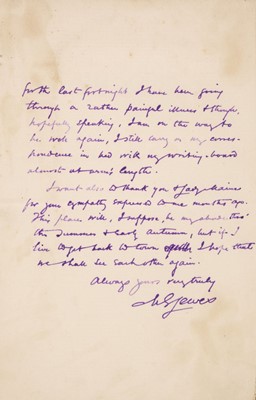 for the last fortnight I have been going
through a rather painful illness & though,
hopefully speaking, I am on the way to
be well again, I still carry on my corres-
pondence in bed with my writing-board
almost at arm's length.
I want also to thank you & Lady
for your sympathy expressed to me months ago.
This place will, I suppose, be my abode thro'
the Summer & early Autumn, but if I
live to get back to town I hope that
we shall see each other again.
Always yours very truly
M E Lewes